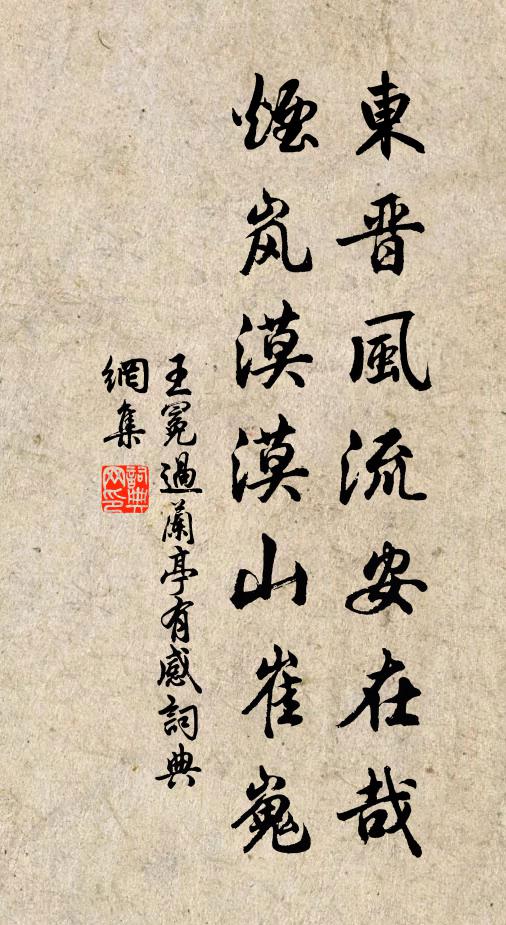 東晋風流安在哉
煙岚漠漠山崔嵬
王冕過蘭亭有感詞典
網集
詞典網印